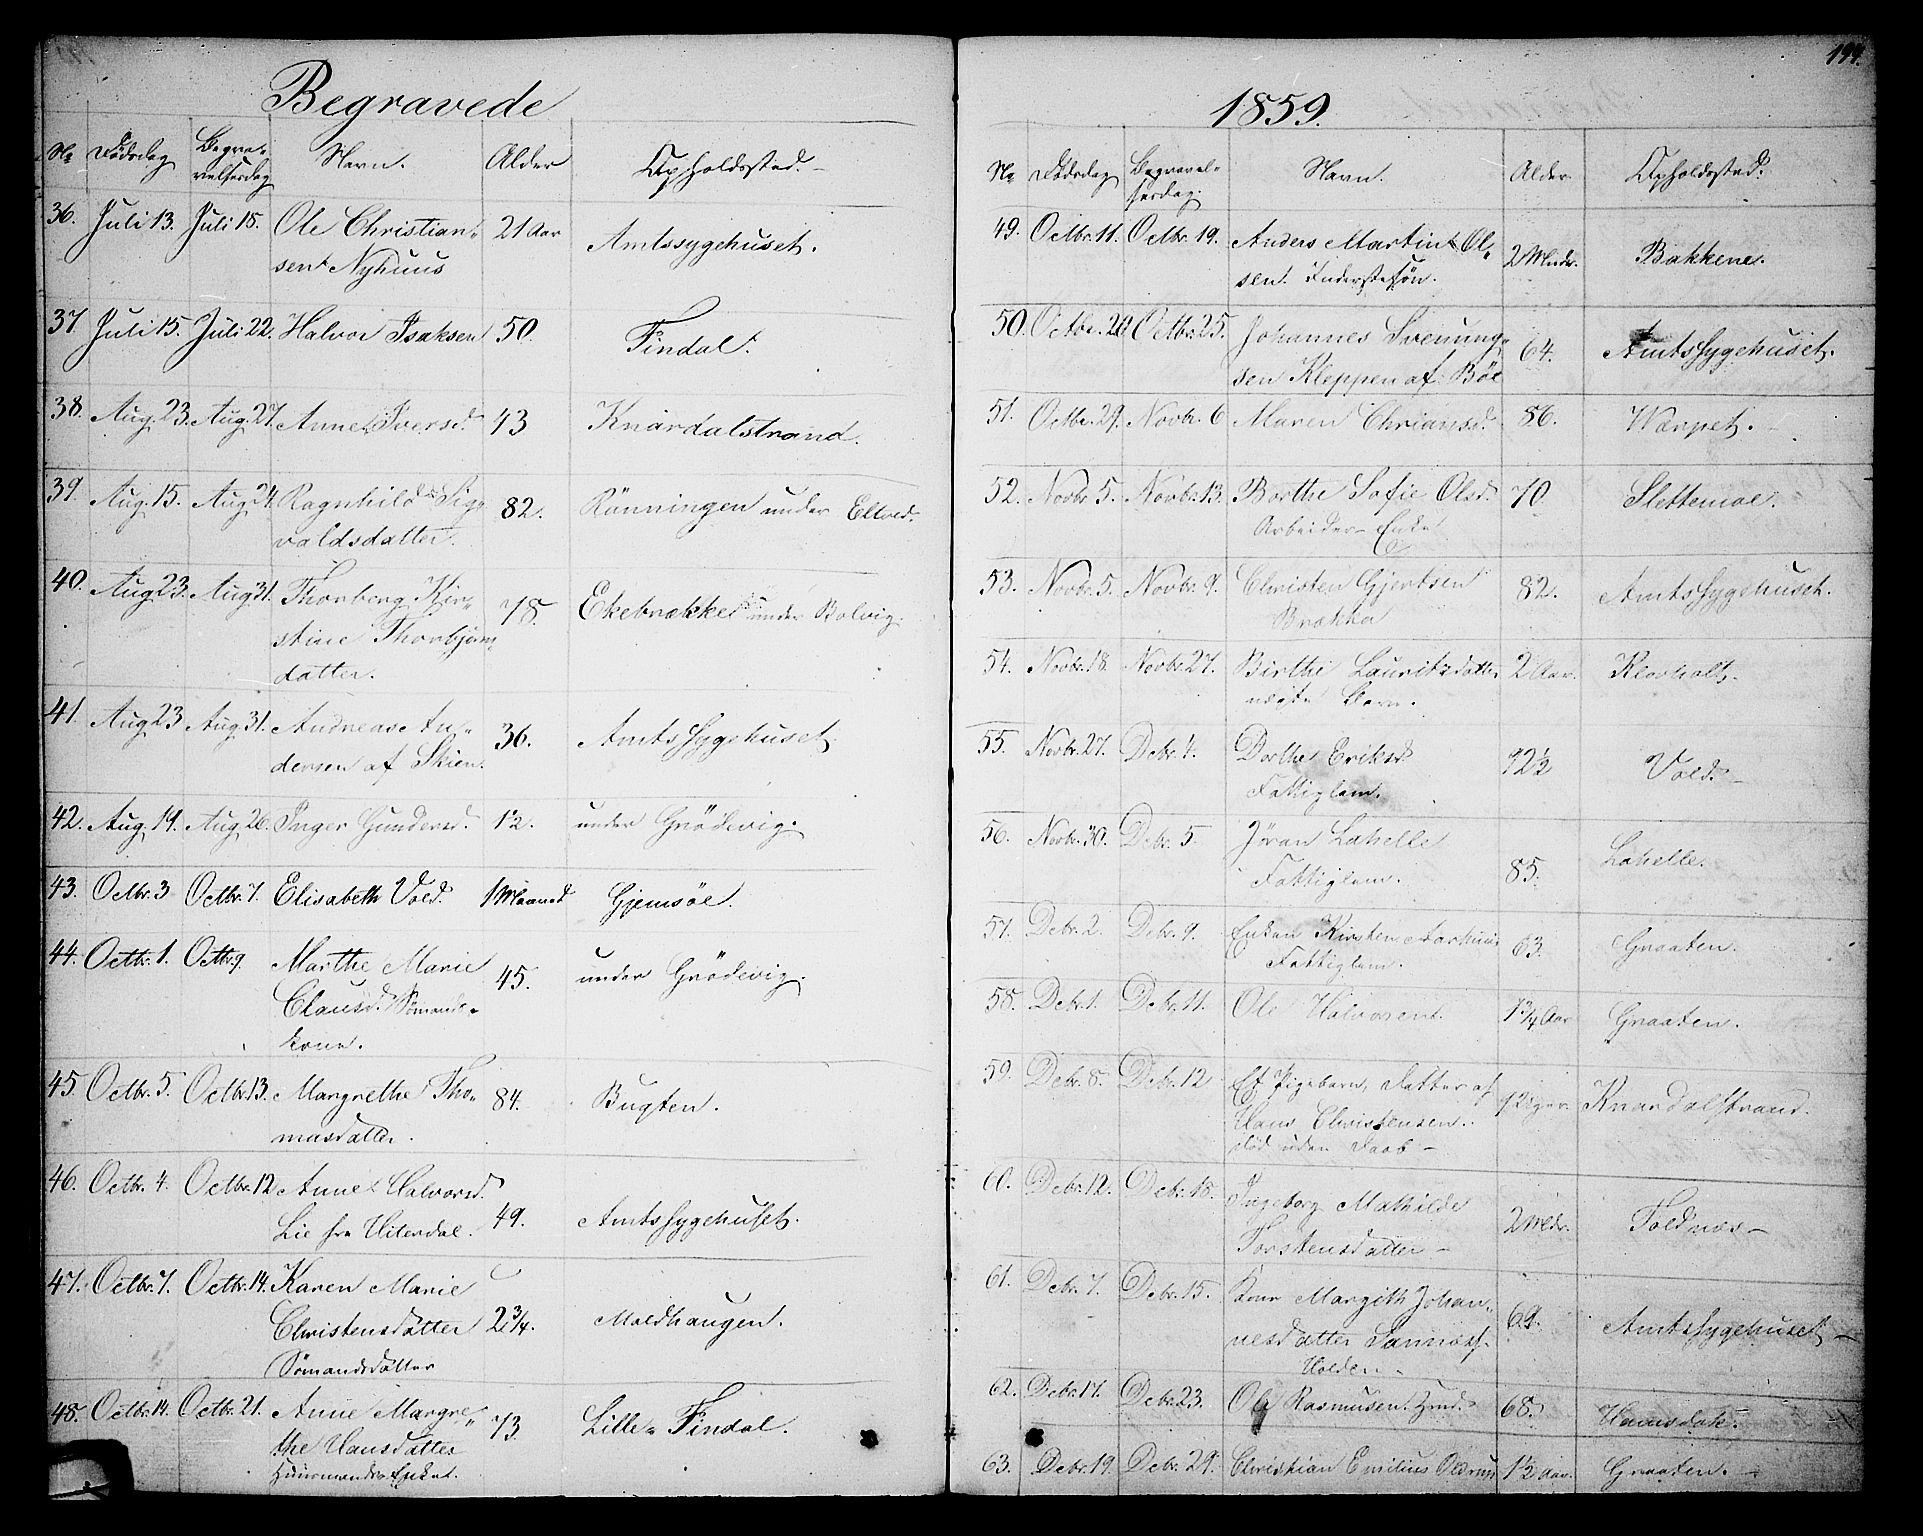 Begravede
No Dödsdag Begravelsesdag Navn. Alder Opholdssted.
36. Juli 13. Juli 18. Ole Christian- 21 Aar Amtssygehuset.
sen Nyhuus
37 Juli 15. Juli 22. Halvor Isaksen 50. Findal.
38. Aug. 23. Aug. 27. Anne Iversd. 43 Knardalstrand.
39. Aug. 15. Aug. 24. Ragnhild Sig- 82. Rönningen under Eltved.
valdsdatter.
40. Aug 23. Aug 31. Thorberg Kir- 78. Ekebrække under Bolvig.
stine Thorbjørns
datter.
41. Aug 23 Aug. 31. Andreas An- 36. Amtssygehuset
dersen af Skien.
42. Aug. 19. Aug 26. Inger Gundersd. 12. under Grödevig.
43. Octbr. 3 Octbr. 7. Elisabeth Vold. 1 Maaned Gjemsöe.
44. Octbr. 1. Octbr 9. Marthe Marie 45. under Grödevig.
Clausd. Sömands-
kone.
45. Octbr. 5. Octbr. 13. Margrethe Tho- 84. Bugten.
masdatter.
46. Octbr. 4. Octbr. 12 Anne Halvorsd. 49. Amtssygehuset.
Lie fra Hiterdal.
47. Octbr. 7. Octbr. 14. Karen Marie 2 3/4. Moldhaugen.
Christensdatter
Sömandsdatter
48. Octbr. 14. Octbr. 21. Anne Margre- 73 Lille Findal.
the Hansdatter
Huusmands Enke.
1859.
199.
No Dödsdag Begravel- Navn. Alder. Opholdssted.
sesdag.
49. Octbr. 11. Octbr. 19. Anders Martin Ol- 2 Mndr. Bakkene.
sen. Inderstesön.
50. Octbr. 20 Octbr. 25. Johannes Svenung- 64. Amtssygehuset.
sen Kleppen af Böe
51. Octbr. 29. Novbr. 6 Maren Chriansd. 86. Værpet.
52. Novbr. 5. Novbr. 13. Berthe Sofie Olsd. 70. Slettemoe.
Arbeider-Enke
53. Novbr. 5. Novbr. 9. Christen Gjertsen 82. Amtssygehuset.
Brækka
54. Novbr. 18. Novbr. 27. Birthe Lauritzdatter 2 Aar. Klovholt.
uægte Barn.
55. Novbr. 27. Debr. 4. Dorthe Eriksd. 92½ Vold.
Fattiglem.
56. Novbr. 30. Debr. 5 Jöran Lahelle 85. Lahelle.
Fattiglem.
57. Debr. 2. Debr. 9. Enken Kirsten Aarhuus 63. Graaten.
Fattiglem.
58. Debr. 1. Debr. 11. Ole Halvorsen. 1 3/4 Aar Graaten.
59. Debr. 8. Debr. 12 Et Pigebarn, Datter af 12 Knardalstrand.
Hans Christensen.
död uden Daab
60. Debr. 12. Debr. 18. Ingeborg Mathilde 2 Mdr. Foldnæs
Torstensdatter
61. Debr. 7. Debr. 15. Margith Johan- 69. Amtssygehuset
nesdatter
Holden
62. Debr. 17. Debr. 23. Ole Rasmusen. 68.
63. Debr. 19. Debr. 29. Christhian Emilius 1½ Aar. Graaten.